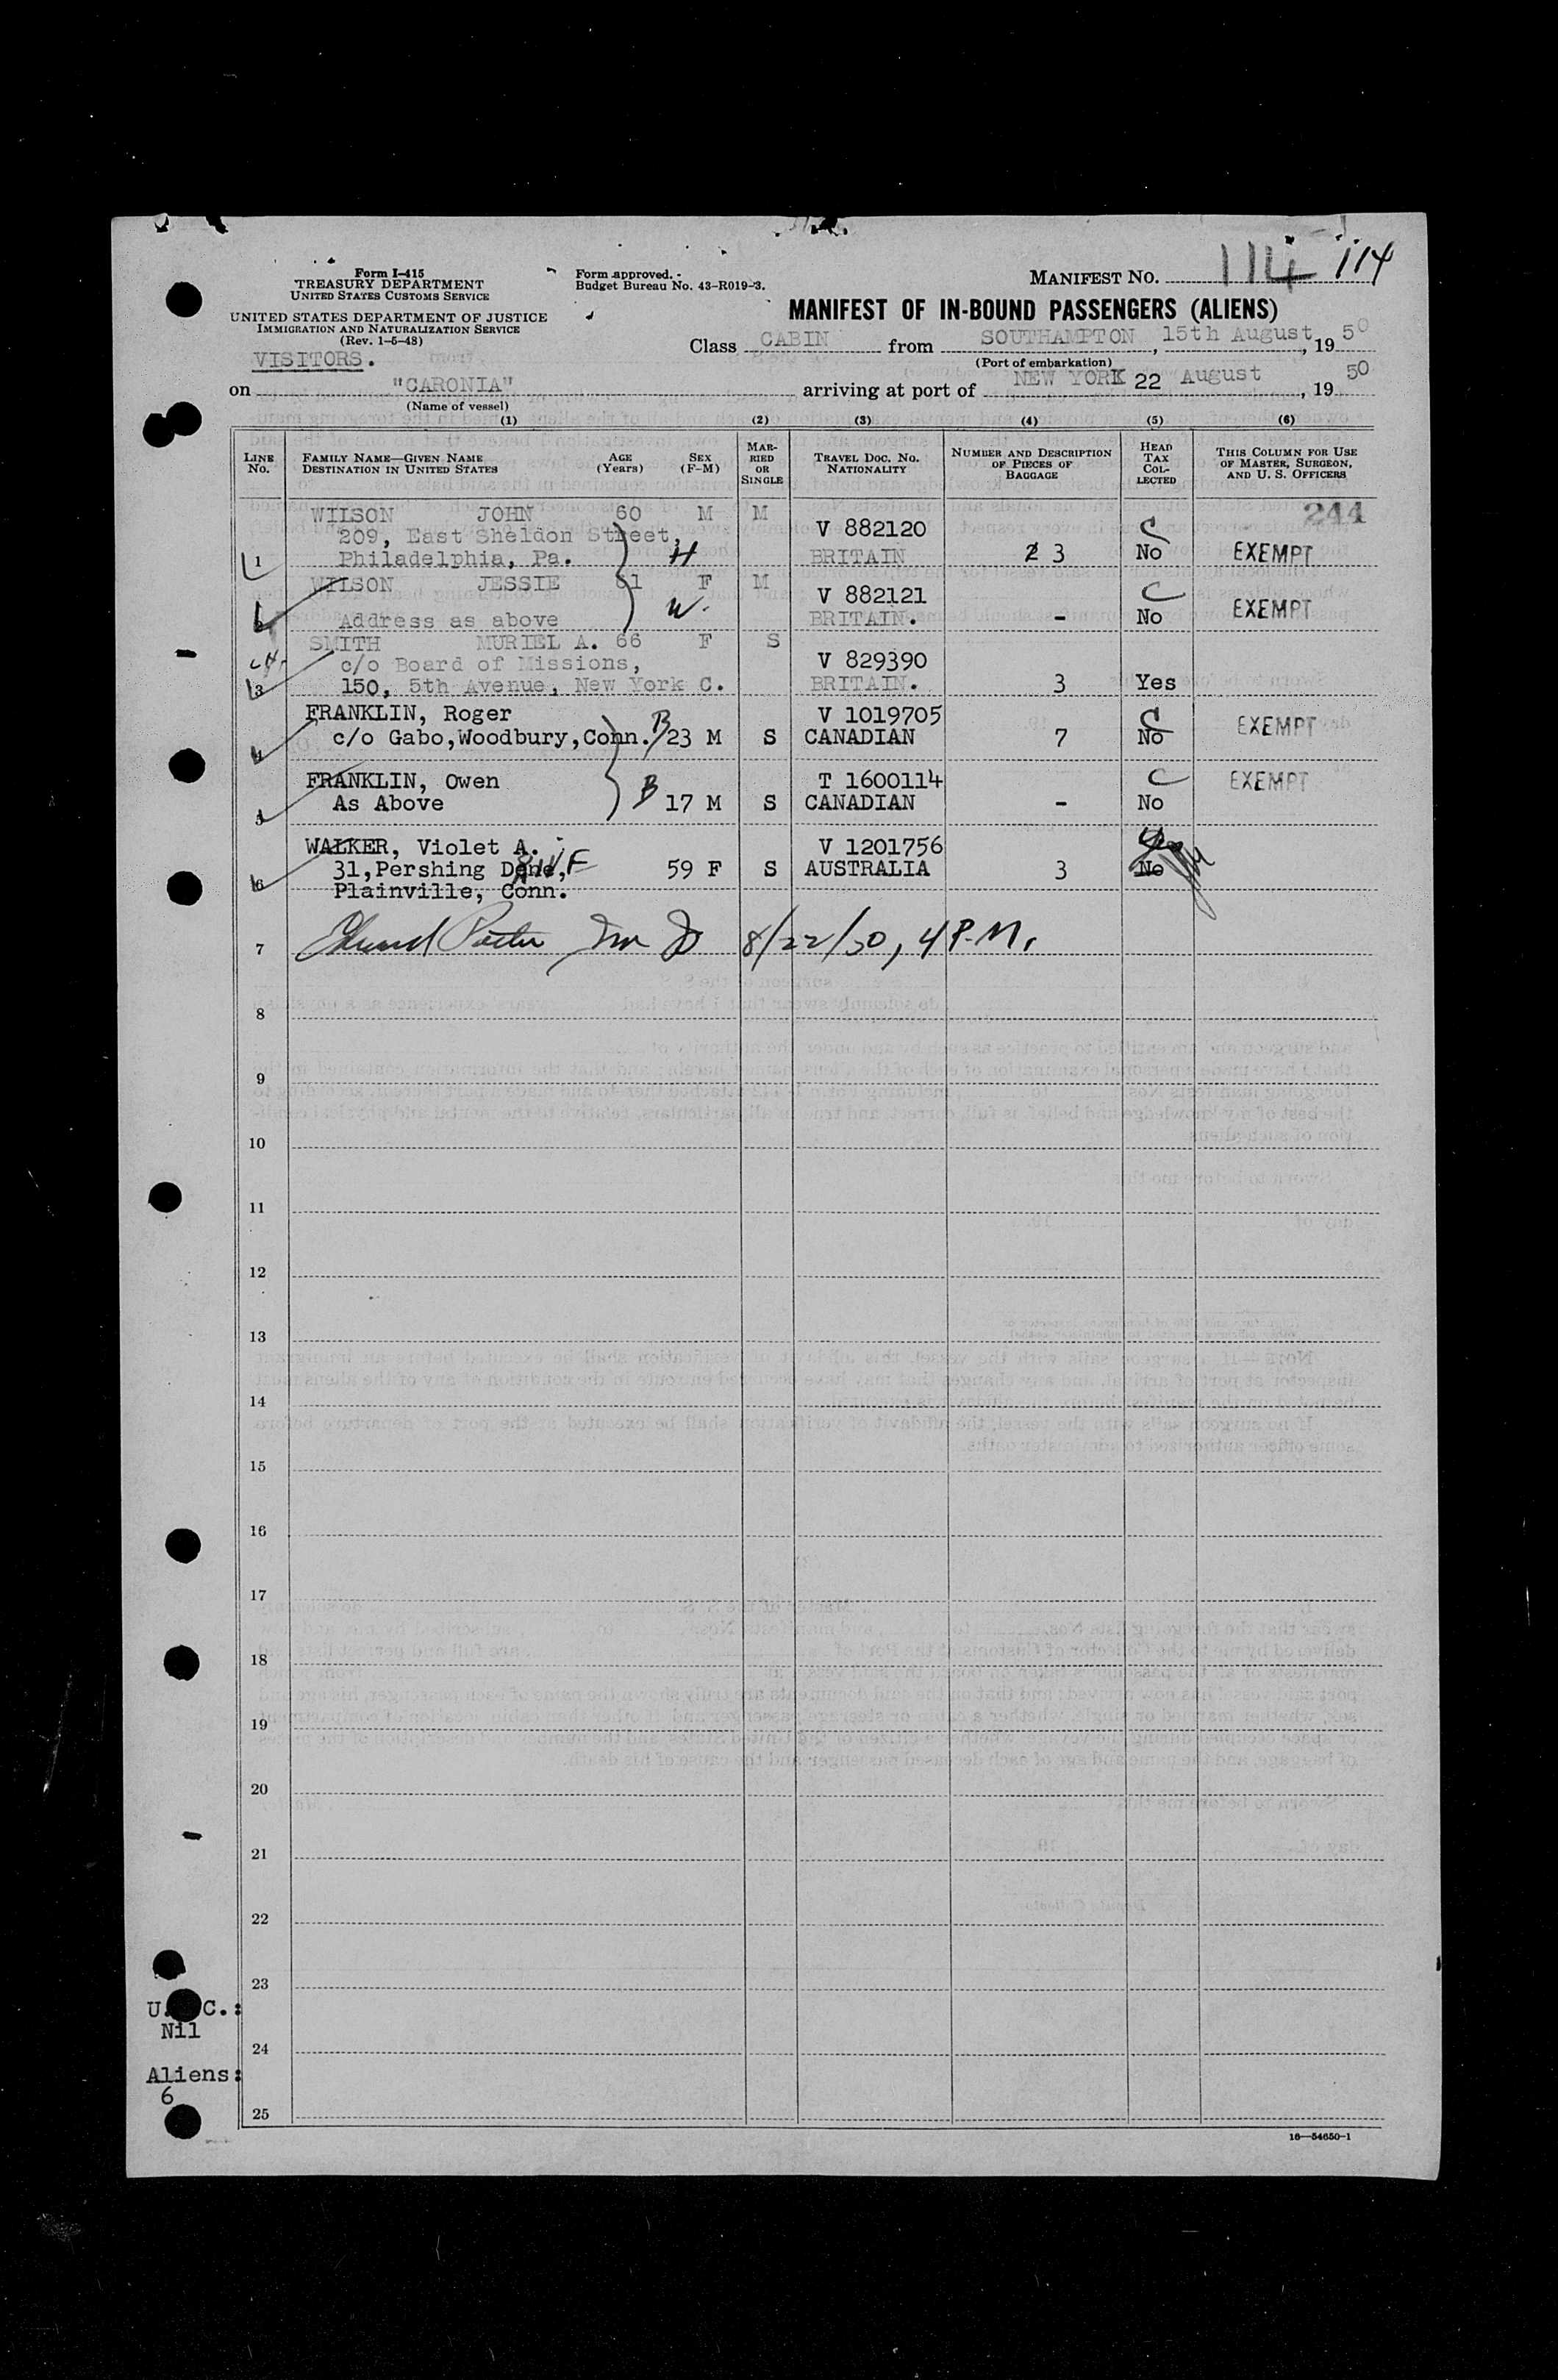 114 114
Form I-415
TREASURY DEPARTMENT
UNITED STATES CUSTOMS SERVICE
UNITED STATES DEPARTMENT OF JUSTICE
IMMIGRATION AND NATURALIZATION SERVICE
(Rev. 1-5-48)
VISITORS.
Form approved.
Budget Bureau No. 43-R019-3.
MANIFEST NO.
MANIFEST OF IN-BOUND PASSENGERS (ALIENS)
Class CABIN from SOUTHAMPTON, 15th August, 1950
(Port of embarkation)
on "CARONIA" arriving at port of NEW YORK 22 August, 1950
(Name of vessel)
(1) (2) (3) (4) (5) (6)
LINE No.
FAMILY NAME—GIVEN NAME
DESTINATION IN UNITED STATES
AGE (Years)
SEX (F-M)
MARRIED OR SINGLE
TRAVEL DOC. NO. NATIONALITY
NUMBER AND DESCRIPTION OF PIECES OF BAGGAGE
HEAD TAX COLLECTED
THIS COLUMN FOR USE OF MASTER, SURGEON, AND U. S. OFFICERS
244
WILSON JOHN 60 M M
209, East Sheldon Street, V 882120 C
1 Philadelphia, Pa. H BRITAIN 2 3 No EXEMPT
WILSON JESSIE 61 F M
W. V 882121 C
Address as above BRITAIN. - No EXEMPT
SMITH MURIEL A. 66 F S
c/o Board of Missions, V 829390
3 150, 5th Avenue, New York C. BRITAIN. 3 Yes
FRANKLIN, Roger V 1019705 C
4 c/o Gabo,Woodbury,Conn. B 23 M S CANADIAN 7 No EXEMPT
FRANKLIN, Owen T 1600114 C EXEMPT
5 As Above B 17 M S CANADIAN - No
WALKER, Violet A. V 1201756 Yes
6 31,Pershing 59 F S AUSTRALIA 3 No
Plainville, Conn.
7 8/22/50, 4 P.M.
8
9
10
11
12
13
14
15
16
17
18
19
20
21
22
23
U. C.:
Nil
24
Aliens:
6
25
16—54650-1